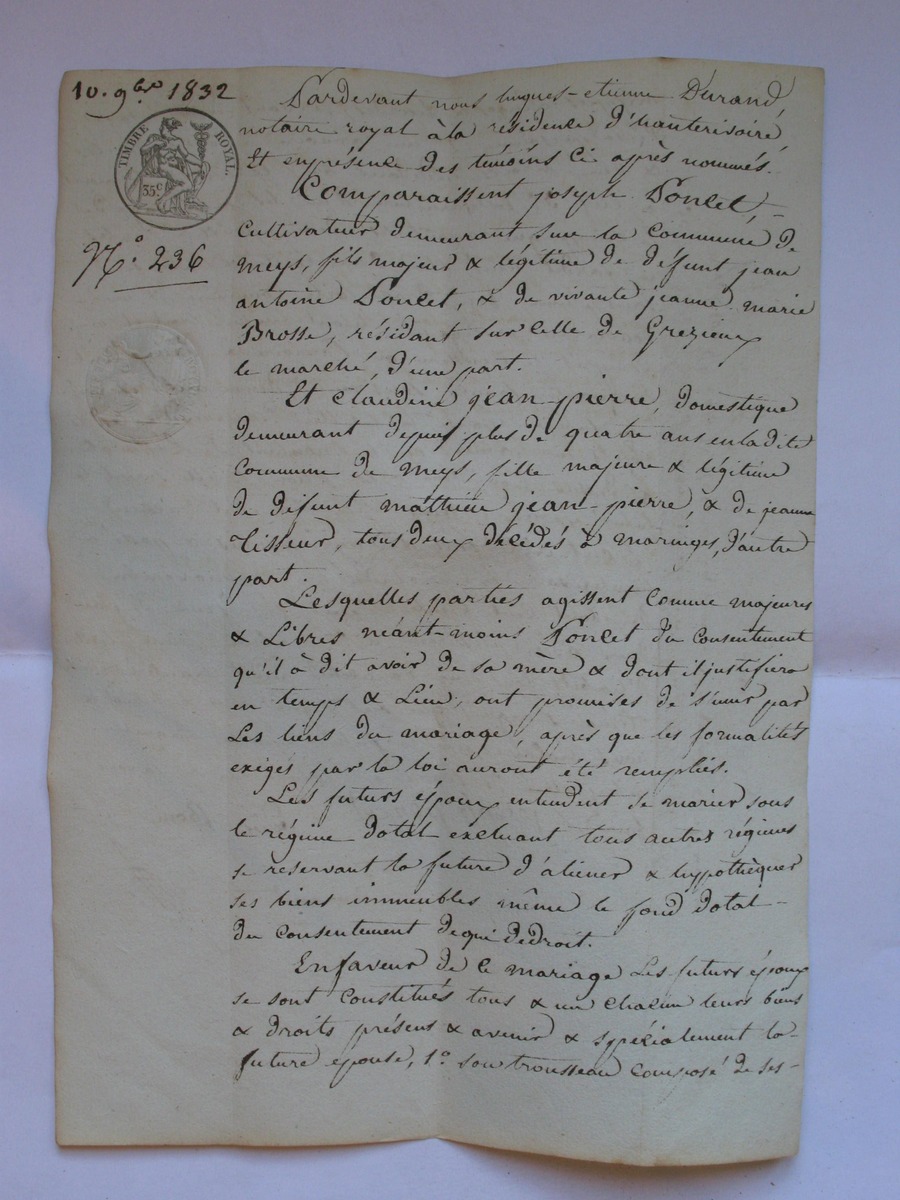 10. 9bre 1832
TIMBRE ROYAL.
35c
N.° 236
Pardevant nous hugues-etienne Durand,
notaire royal à la résidence d'hauterivoire
Et en présence des témoins ci après nommés.
Comparaissent joseph Poncet,
Cultivateur demeurant sur la Commune de
meys, fils majeur & légitime de défunt jean
antoine Poncet, & de vivante jeanne marie
Brosse, résidant sur celle de Grezieux
le marché, d'une part.
Et Claudine jean-pierre, domestique
demeurant depuis plus de quatre ans en la dite
Commune de meys, fille majeure & légitime
de défunt mathieu jean-pierre, & de jeanne
Tisseur, tous deux décédés à maringes, d'autre
part.
Lesquelles parties agissent comme majeures
& Libres néant-moins Poncet du consentement
qu'il à dit avoir de sa mère & dont il justifiera
en temps & Lieu, ont promises de s'unir par
Les liens du mariage, après que les formalités
exiges par la loi auront été remplies.
Les futurs époux entendent se marier sous
le régime dotal excluant tous autres régimes
se reservant la future d'aliener & hypothèquer
ses biens immeubles même le fond dotal -
du consentement de qui de droit.
En faveur de ce mariage Les futurs époux
se sont constitués tous & un chacun leurs biens
& droits présens & avenir & spécialement la
future épouse, 1.° son trousseau composé de ses -